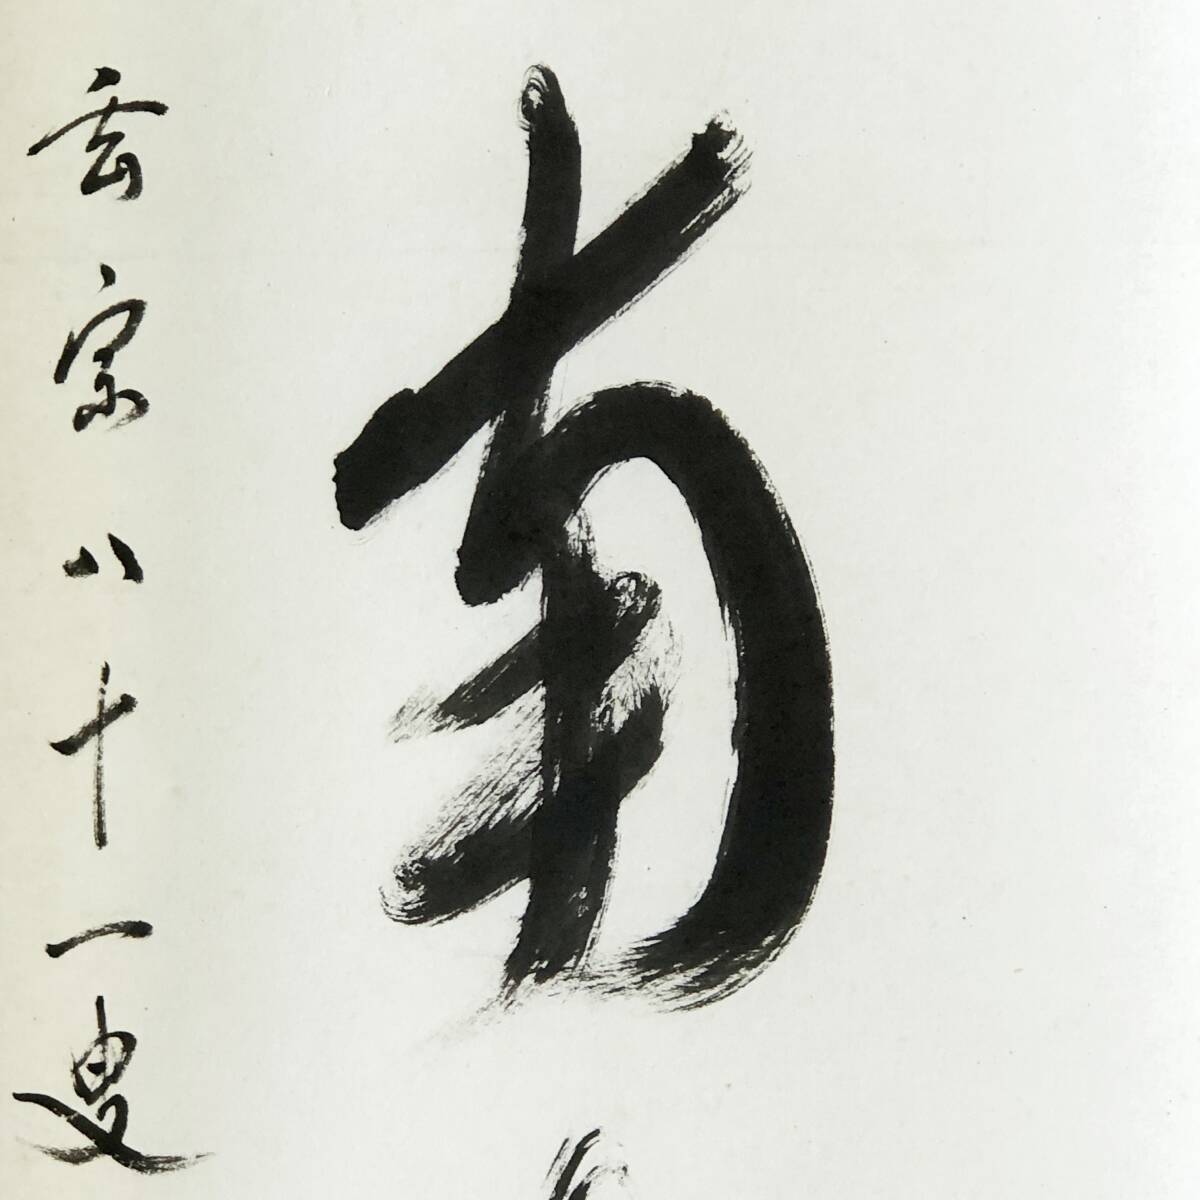 南
玄宗八十一叟